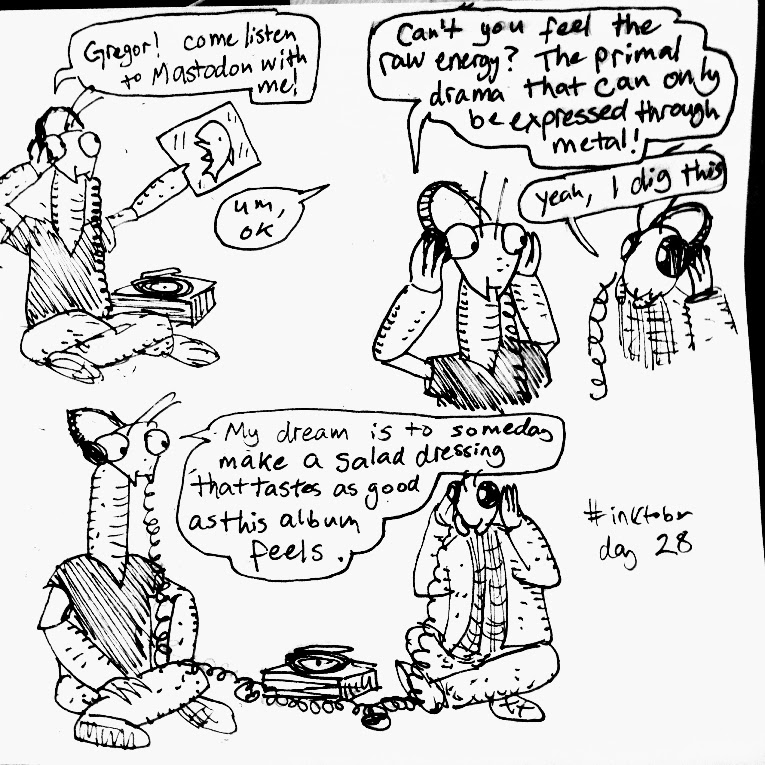 Gregor! come listen
to Mastodon with
me!
um,
OK
Can't you feel the
raw energy? The primal
drama that can only
be expressed through
metal!
yeah, I dig this
My dream is to someday
make a salad dressing
that tastes as good
as this album
feels.
#inktober
day 28